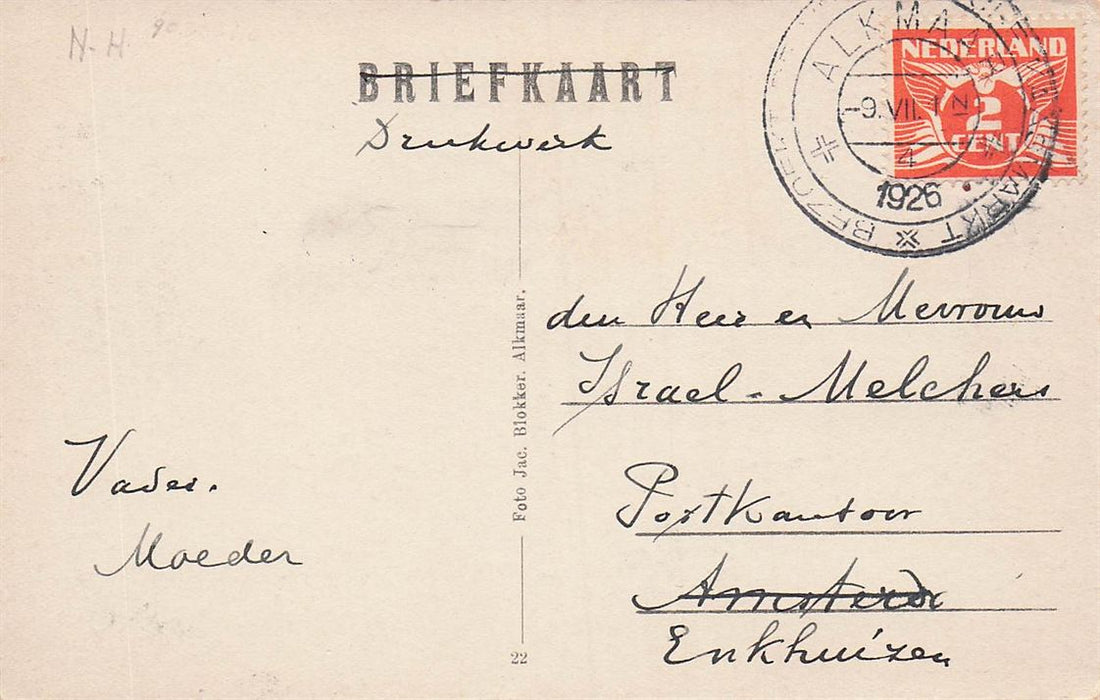 N-H
BRIEFKAART
Drukwerk
ALKMAAR
-9.VII.1
4
1926
BEZOEKT
KAASMARKT
NEDERLAND
2
CENT
den Heer en Mevrouw
Israel-Melchers
Postkantoor
Amsterd
Enkhuizen
Vader.
Moeder
Foto Jac. Blokker. Alkmaar.
22